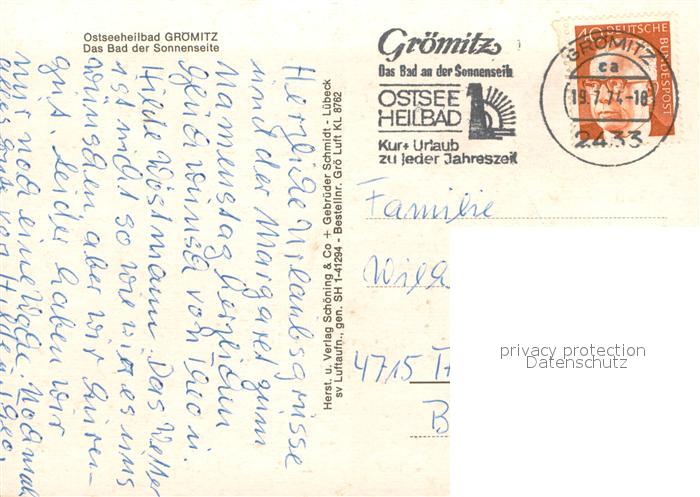 Ostseeheilbad GRÖMITZ
Das Bad der Sonnenseite
Grömitz
Das Bad an der Sonnenseite
OSTSEE
HEILBAD
Kur + Urlaub
zu jeder Jahreszeit
40 DEUTSCHE BUNDESPOST
GRÖMITZ
ca
19.7.74-18
2433
Herst. u. Verlag Schöning & Co + Gebrüder Schmidt - Lübeck
sv Luftaufn., gen. SH 1-41294 - Bestellnr. Grö Luft KL 8762
Herzliche Urlaubsgrüsse
und der Margaret zum
Namenstag herzlichen
Glückwunsch von Theo u.
Hilde Wostmann. Das Wetter
ist nicht so wie wir es uns
wünschen aber wir amüren-
gut. Leider haben wir
nur noch eine Woche. Nochmal
alles gute von Hilde u. Theo.
Familie
4715
privacy protection
Datenschutz